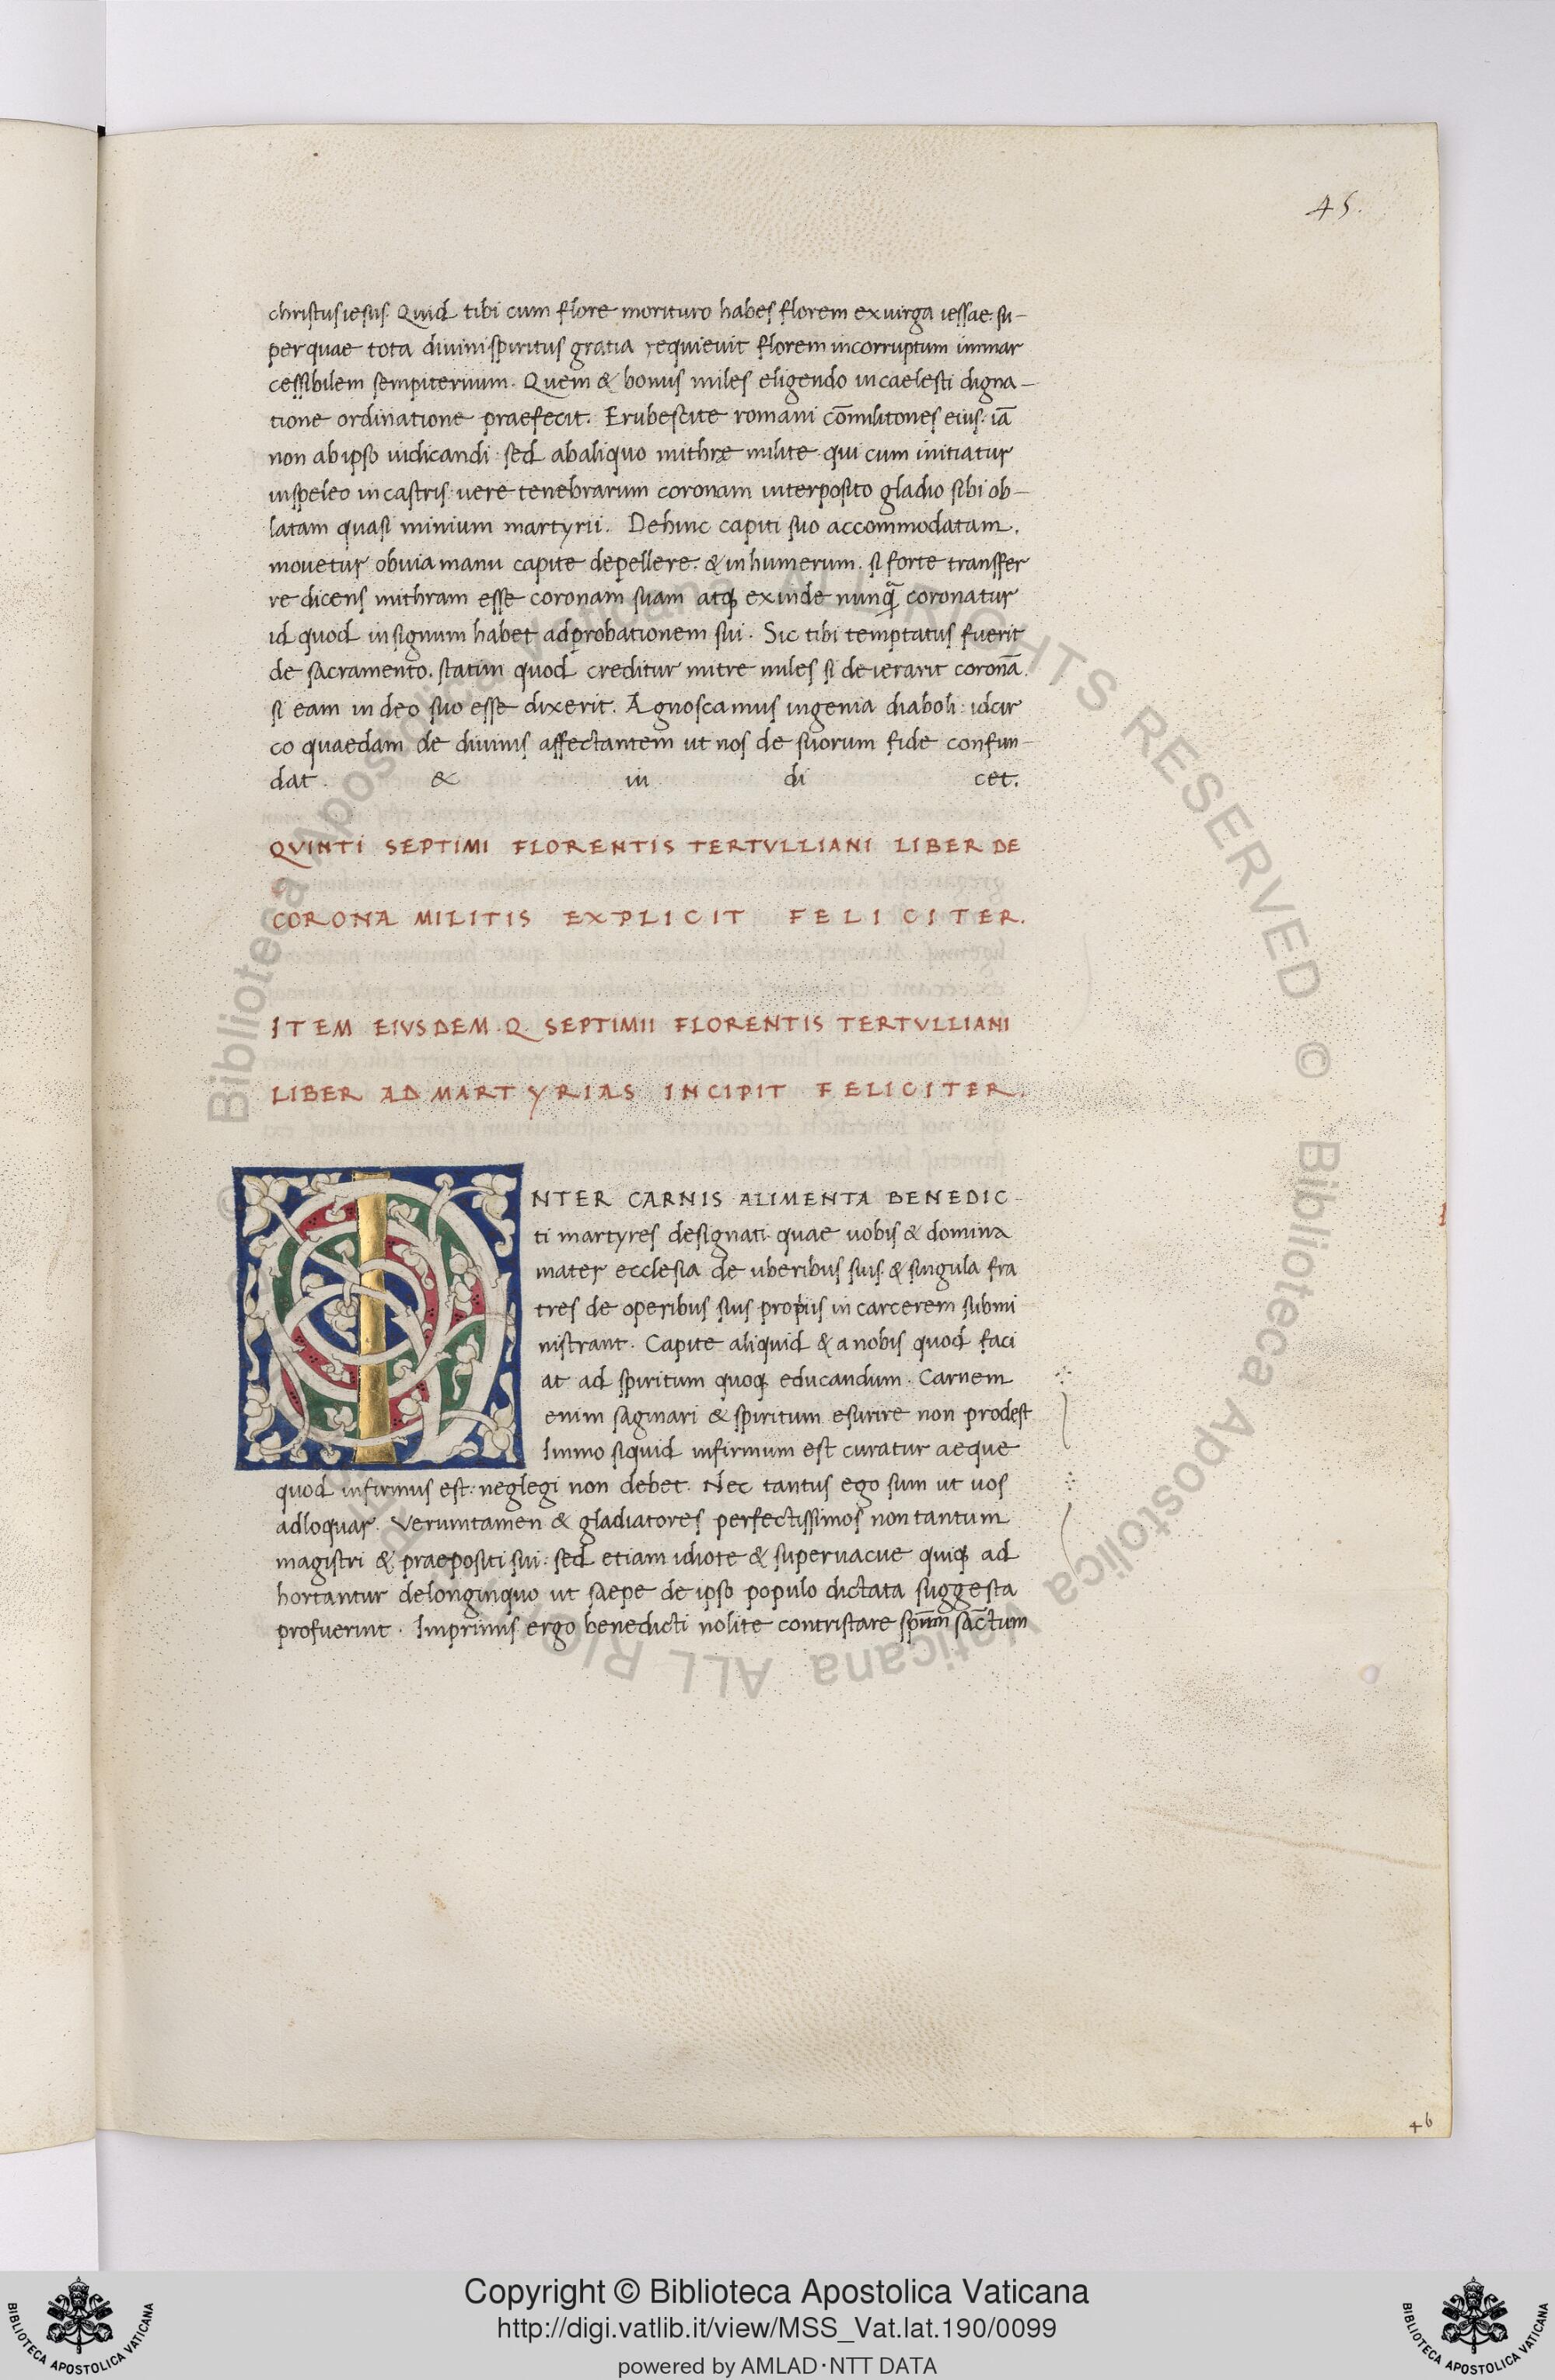 45.
christus iesus. Quid tibi cum flore morituro habes florem ex uirga iessae. su-
per quae tota diuini spiritus gratia requieuit florem incorruptum immar
cessibilem sempiternum. Quem & bonus miles eligendo in caelesti digna-
tione ordinatione praefecit. Erubescite romani cōmilitones eius. iā
non ab ipso iudicandi. sed ab aliquo mithrę milite. qui cum initiatur
in speleo in castris. uere tenebrarum coronam interposito gladio sibi ob-
latam quasi minium martyrii. Dehinc capiti suo accommodatam.
mouetur obuia manu capite depellere. & in humerum. si forte transffer
re dicens mithram esse coronam suam atq; exinde nunq̄ coronatur
id quod in signum habet ad probationem sui. Sic tibi temptatus fuerit
de sacramento. statim quod creditur mitre miles si deierarit coronā.
si eam in deo suo esse dixerit. Agnoscamus ingenia diaboli: idcir
co quaedam de diuinis affectantem ut nos de suorum fide confun-
dat. & iu di cet.
QVINTI SEPTIMI FLORENTIS TERTVLLIANI LIBER DE
CORONA MILITIS EXPLICIT FELICITER.
ITEM EIVSDEM. Q. SEPTIMII FLORENTIS TERTVLLIANI
LIBER AD MARTYRIAS INCIPIT FELICITER.
INTER CARNIS ALIMENTA BENEDIC-
ti martyres designati. quae uobis & domina
mater ecclesia de uberibus suis. & singula fra
tres de operibus suis propiis in carcerem submi
nistrant. Capite aliquid & a nobis quod faci
at ad spiritum quoq; educandum. Carnem
enim saginari & spiritum esurire non prodest
Immo siquid infirmum est curatur aeque
quod infirmus est. neglegi non debet. Nec tantus ego sum ut uos
adloquar. Verumtamen & gladiatores perfectissimos non tantum
magistri & praepositi sui: sed etiam idiote & superuacue quiq; ad
hortantur de longinquo ut saepe de ipso populo dictata suggesta
profuerint. Imprimis ergo benedicti nolite contristare spm̄ sāctum
46
Biblioteca Apostolica Vaticana ALL RIGHTS RESERVED © Biblioteca Apostolica Vaticana
Copyright © Biblioteca Apostolica Vaticana
http://digi.vatlib.it/view/MSS_Vat.lat.190/0099
powered by AMLAD·NTT DATA
BIBLIOTECA APOSTOLICA VATICANA
BIBLIOTECA APOSTOLICA VATICANA